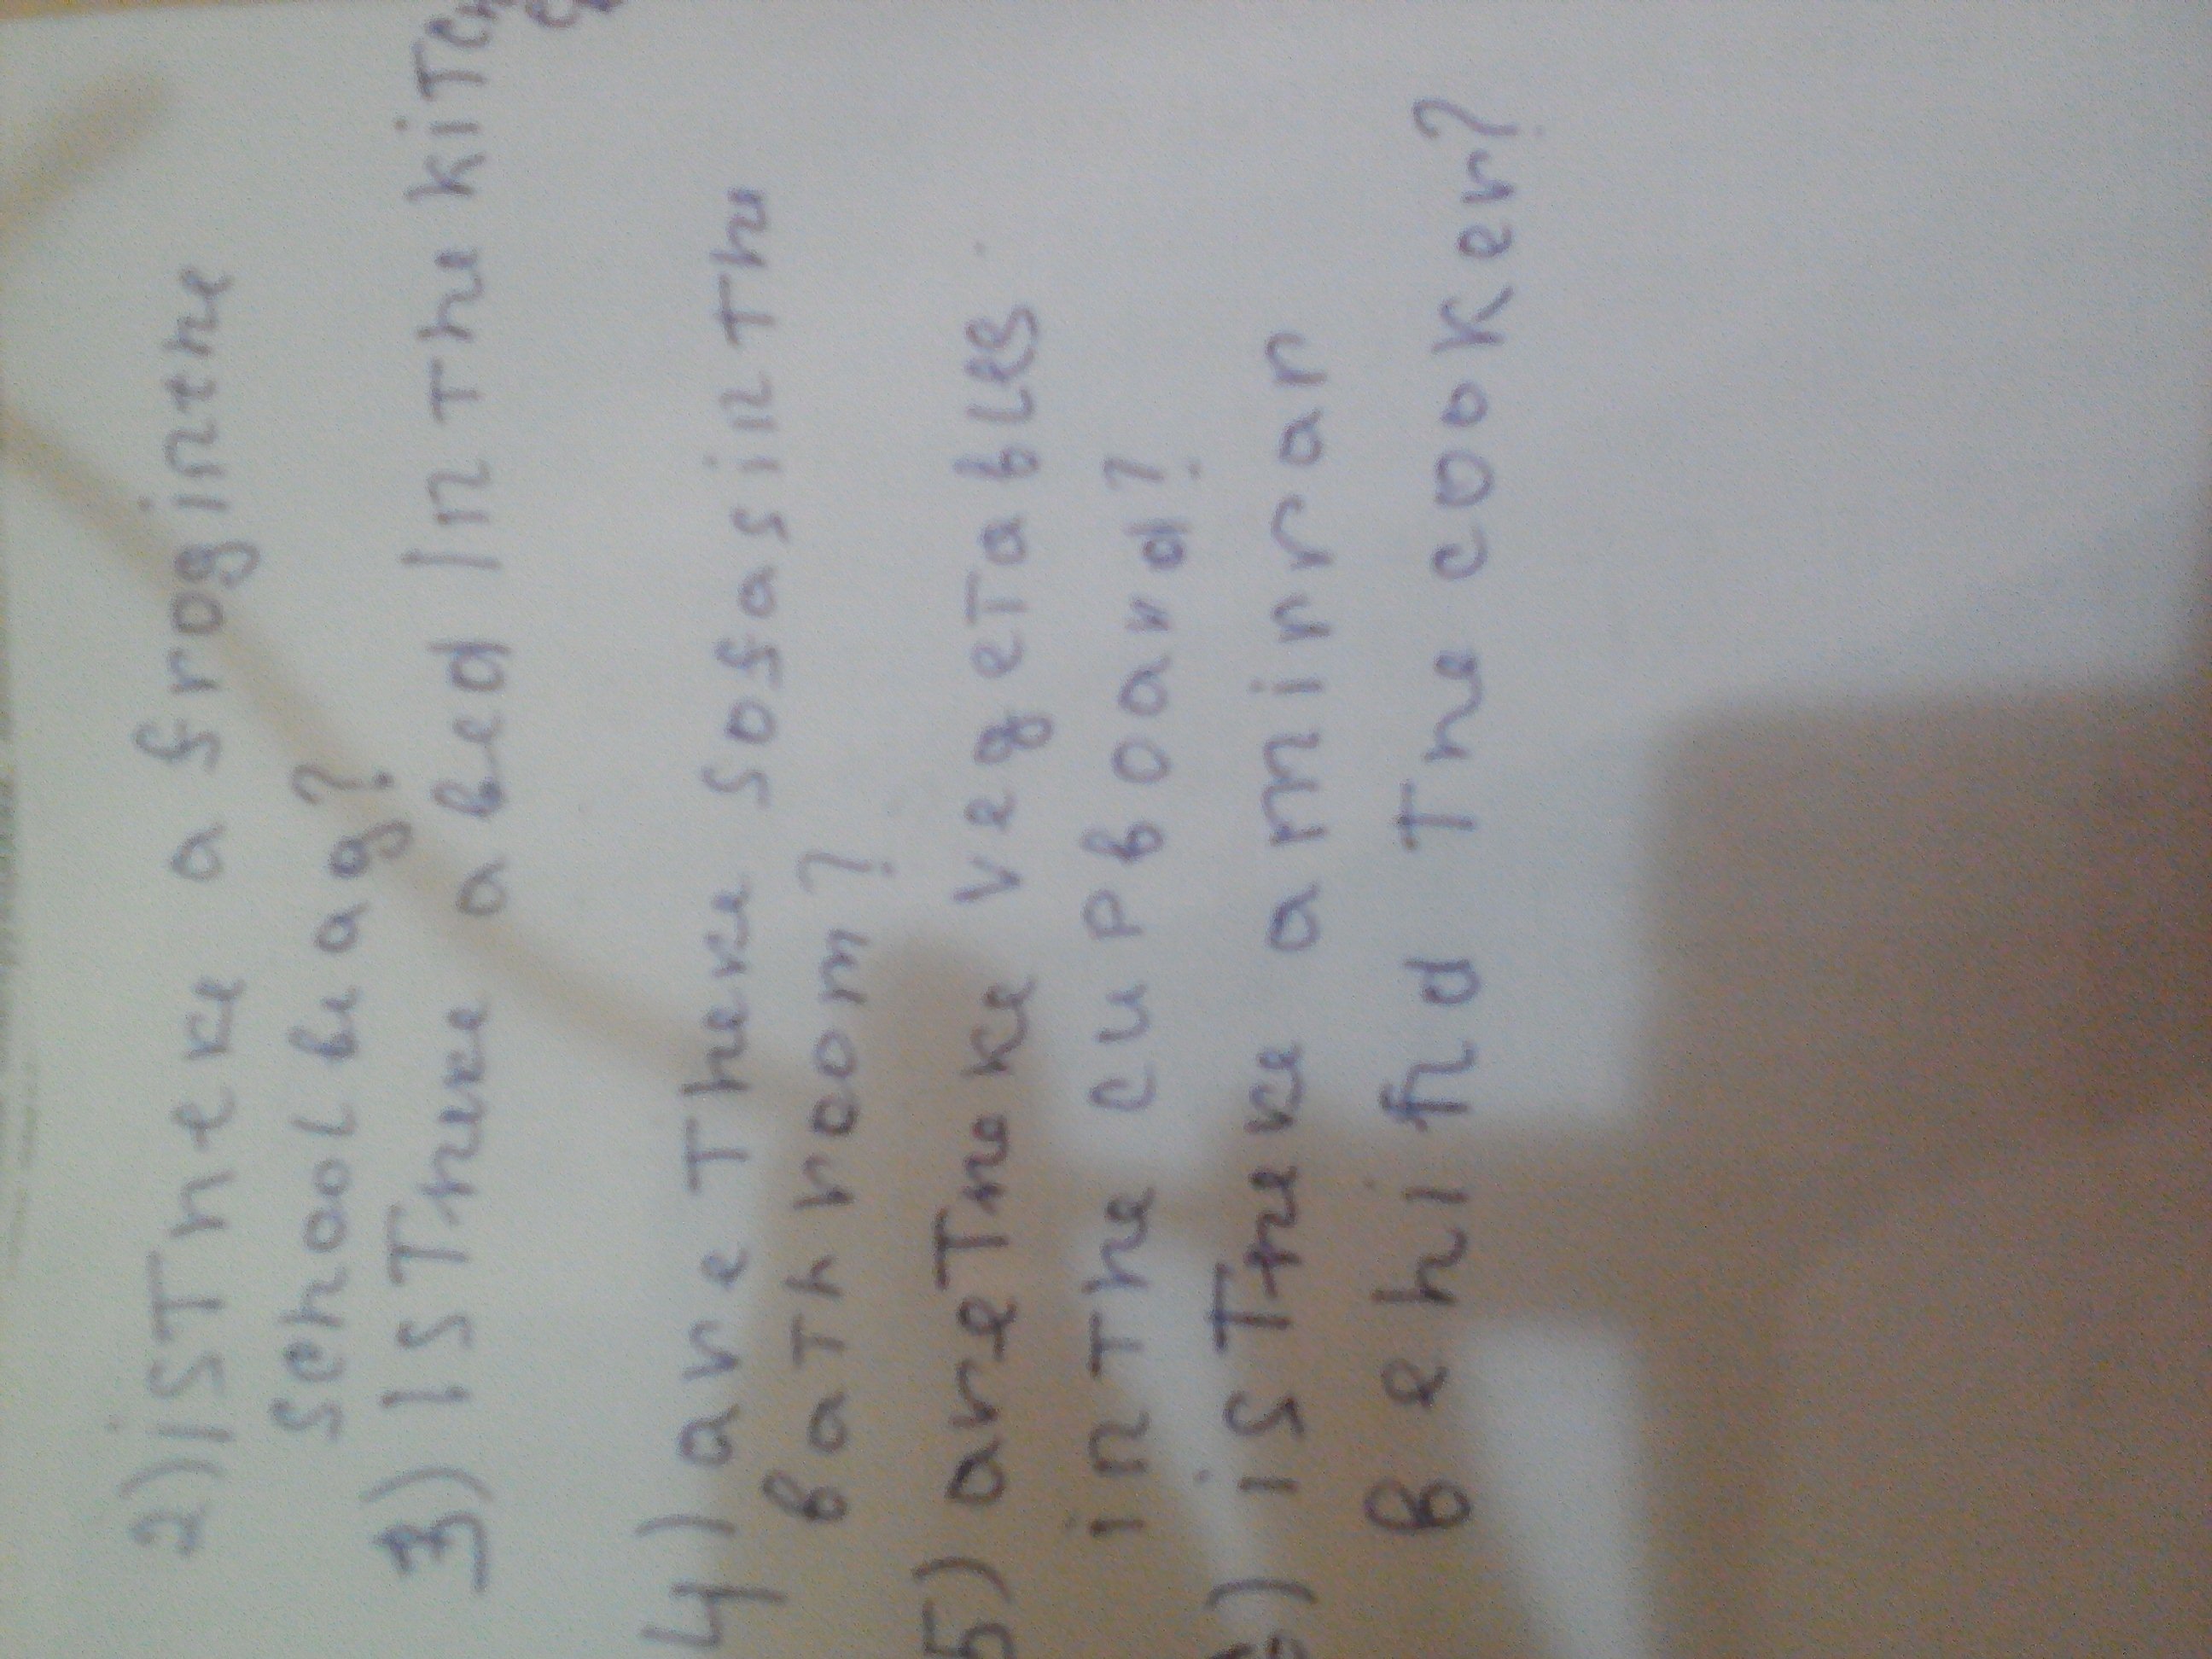 2) is There a frog in the
school bag?
3) Is There a bed In The kiTch
4) are There sofas in The
bathroom?
5) are There vegeTables
in The cupboard?
6) is There a mirrar
Behind The cooker?